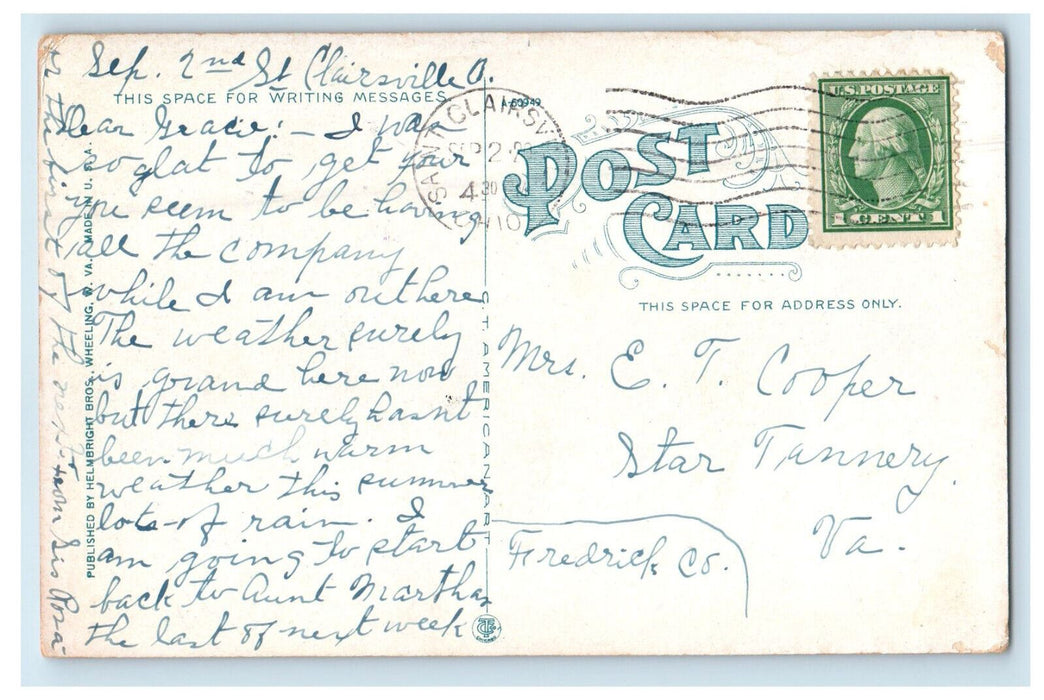 Sep. 2nd St Clairsville O.
THIS SPACE FOR WRITING MESSAGES
Dear Grace:- I was
so glat to get your
you seem to be having
all the company
while I am out here
The weather surely
is grand here now
but there surely hasnt
been much warm
weather this summer
lots-of rain. I
am going to start
back to Aunt Marthas
the last of next week
or the first of the next. From Sis Rosa
PUBLISHED BY HELMBRIGHT BROS., WHEELING, W. VA. MADE IN U. S. A.
C. T. AMERICAN ART
A-60949
SAINT CLAIRSV
SEP 2
4 30
OHIO
POST
CARD
U.S. POSTAGE
1 CENT 1
THIS SPACE FOR ADDRESS ONLY.
Mrs. E. T. Cooper
Star Tannery
Va.
Fredrick Co.